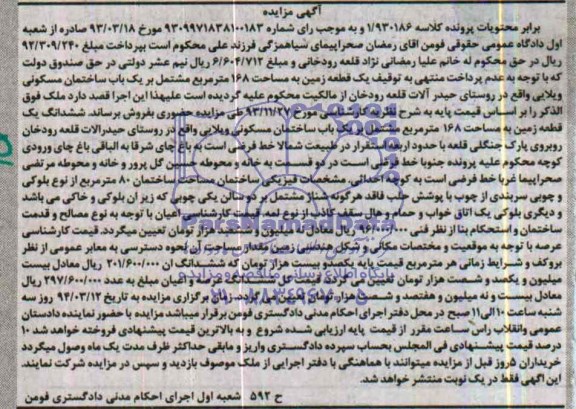 آگهی مزایده
برابر محتویات پرونده کلاسه 1/930186 و به موجب رای شماره 9309971838100183 مورخ 93/03/18 صادره از شعبه
اول دادگاه عمومی حقوقی فومن آقای رمضان صحراپیمای سیاهمزگی فرزند علی محکوم است بپرداخت مبلغ 92/309/240
ریال در حق محکوم له خانم علیا رمضانی نژاد قلعه رودخانی و مبلغ 6/604/712 ریال نیم عشر دولتی در حق صندوق دولت
که با توجه به عدم پرداخت منتهی به توقیف یک قطعه زمین به مساحت 168 مترمربع مشتمل بر یک باب ساختمان مسکونی
ویلایی واقع در روستای حیدر آلات قلعه رودخان از مالکیت محکوم علیه گردیده است علیهذا این اجرا قصد دارد ملک فوق
الذکر را بر اساس قیمت پایه به شرح نظریه کارشناسی مورخ 93/11/27 طی مزایده حضوری بفروش برساند. ششدانگ یک
قطعه زمین به مساحت 168 مترمربع مشتمل بر یک باب ساختمان مسکونی ویلایی واقع در روستای حیدرالات قلعه رودخان
روبروی پارک جنگلی قلعه با حدود اربعه استقرار در طبیعت شمالا خط فرضی است به باغ چای شرقا به الباقی باغ چای ورودی
کوچه محکوم علیه پرونده جنوبا خط فرضی است در دو قسمت به خانه و محوطه حسین گل پرور و خانه و محوطه مرتضی
صحراپیما غربا خط فرضی است به کوچه احداثی. مشخصات فیزیکی ساختمان مساحت ساختمان 80 مترمربع از نوع بلوکی
و چوبی سربندی از چوب با پوشش حلب فاقد هرگونه ممتاز مشتمل بر دو سالن یکی چوبی که زیر آن بلوکی و خاکی می باشد
و دیگری بلوکی یک اتاق خواب و حمام و هال سقف کاذب از نوع لمه قیمت کارشناسی اعیان با توجه به نوع مصالح و قدمت
ساختمان و استحکام بنا از نظر فنی 96/000/000 ریال معادل نه میلیون و ششصد هزار تومان تعیین میگردد. قیمت کارشناسی
عرصه با توجه به موقعیت و مختصات مکانی و شکل هندسی زمین مقدار مساحت آن نحوه دسترسی به معابر عمومی از نظر
بروکف و شرایط زمانی هر مترمربع قیمت پایه یکصدو بیست هزار تومان که ششدانگ آن 201/600/000 ریال معادل بیست
میلیون و یکصد و شصت هزار تومان تعیین می گردد قیمت کل ششدانگ عرصه و اعیان مبلغ به عدد 297/600/000 ریال
معادل بیست و نه میلیون و هفتصد و شصت هزار تومان تعیین می گردد. زمان برگزاری مزایده به تاریخ 94/03/12 روز سه
شنبه ساعت 10 الی 11 صبح در محل دفتر اجرای احکام مدنی دادگستری فومن برقرار میباشد مزایده با حضور نماینده دادستان
عمومی وانقلاب راس ساعت مقرر از قیمت پایه ارزیابی شده شروع و به بالاترین قیمت پیشنهادی فروخته خواهد شد 10
درصد قیمت پیشنهادی فی المجلس بحساب سپرده دادگستری واریز و مابقی حداکثر ظرف مدت یک ماه وصول میگردد
خریداران 5روز قبل از مزایده میتوانند با هماهنگی با دفتر اجرایی از ملک موصوف بازدید و سپس در مزایده شرکت نمایند.
این آگهی فقط در یک نوبت منتشر خواهد شد.
ح 592 شعبه اول اجرای احکام مدنی دادگستری فومن